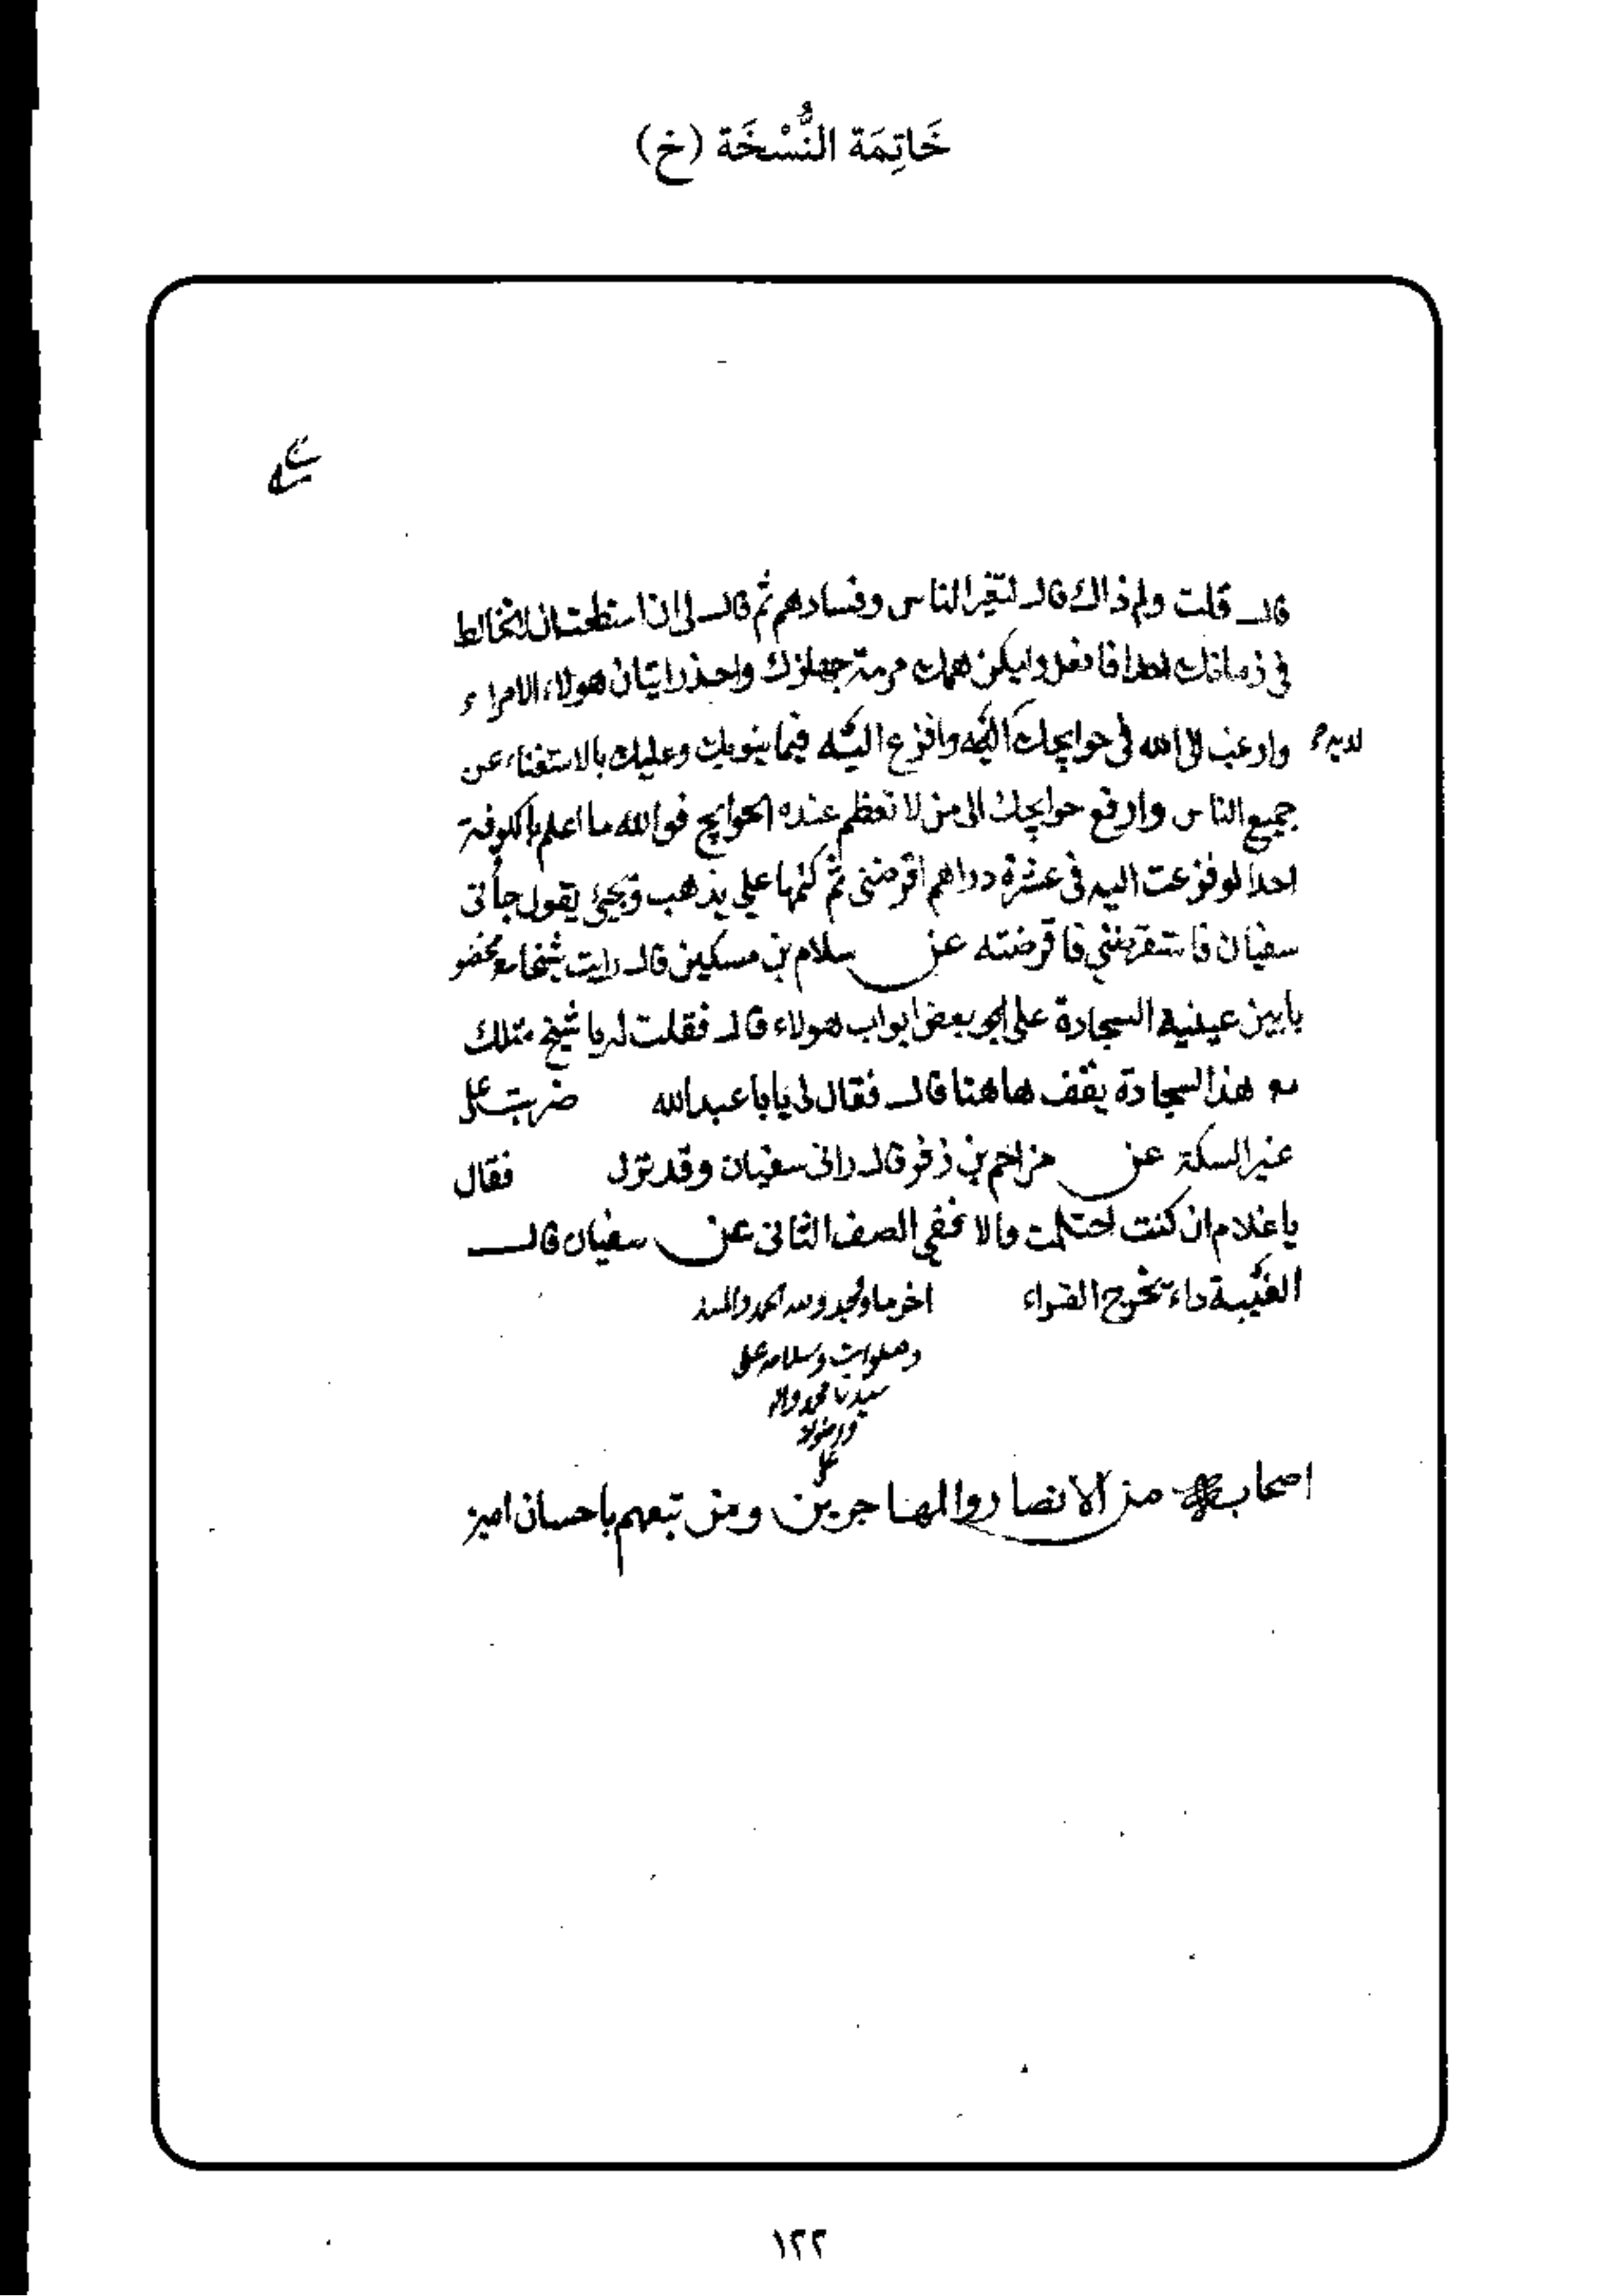 خَاتِمَة النُّسْخَة (خ)
قال قلت ولم ذاك قال لتغير الناس وفسادهم ثم قال لي ان استطعت ان لا تخالط
في زمانك احدا فافعل وليكن همك مرمة جهازك واحذر اتيان هولاء الامراء
وارغب الى الله في حوايجك اليه وافزع اليه فيما ينوبك وعليك بالاستغناء عن
جميع الناس وارفع حوايجك الى من لا تعظم عنده الحوايج فوالله ما اعلم بالكوفة
احدا لو فزعت اليه في عشرة دراهم اقرضني ثم كتمها علي يذهب ويجئ يقول جأني
سفيان فاستقرضني فاقرضته عن سلام بن مسكين قال رايت شيخا
بابين عينيه السجادة على بعض ابواب هولاء قال فقلت له يا شيخ مثلك
هذا السجادة يقف هاهنا قال فقال لي يابا عبدالله ضربت على
غير السكة عن مزاحم بن زفر قال راني سفيان وقد نزل فقال
يا غلام ان كنت احتلمت والا ففي الصف الثاني عن سفيان قال
الغيبة داء القراء اخر ما وجد
وصلوات وسلامه على
سيدنا محمد واله
على
اصحابه من الانصار والمهاجرين ومن تبعهم باحسان امين
١٢٢